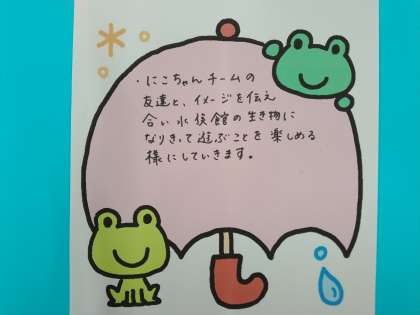 ・にこちゃんチームの
友達と、イメージを伝え
合い水族館の生き物に
なりきって遊ぶことを楽しめる
様にしていきます。